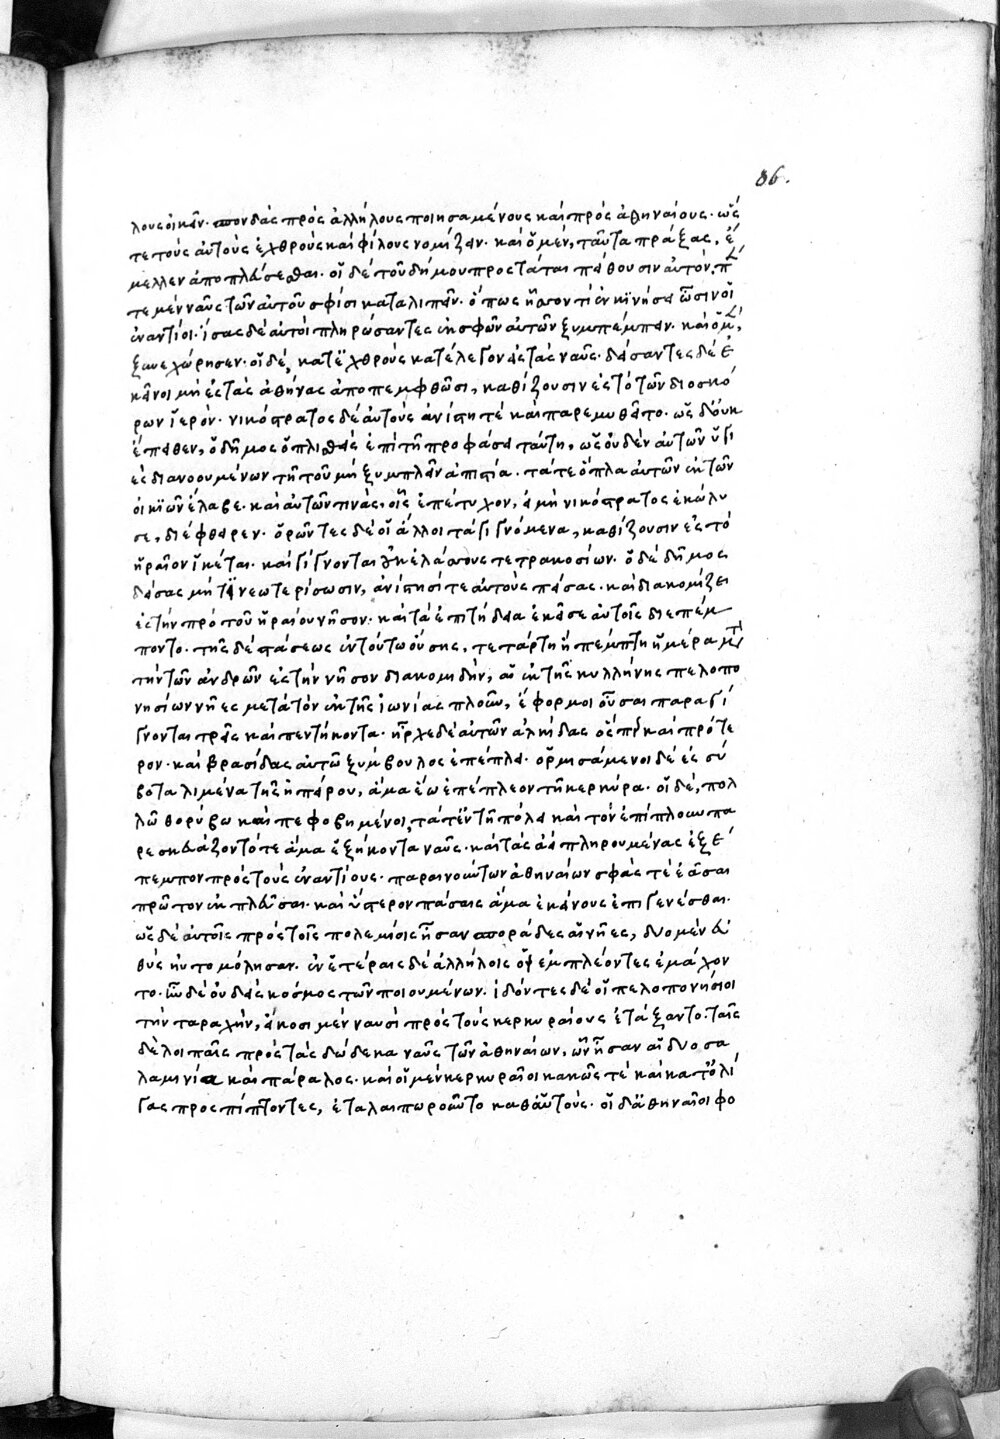 86.
λους οἰκεῖν. σπονδὰς πρὸς ἀλλήλους ποιησαμένους καὶ πρὸς ἀθηναίους. ὥς
τε τοὺς αὐτοὺς ἐχθροὺς καὶ φίλους νομίζειν. καὶ ὁ μὲν, ταῦτα πράξας, ἔ
μελλεν ἀποπλεύσεσθαι. οἱ δὲ τοῦ δήμου προστάται πείθουσιν αὐτὸν, πέν
τε μὲν ναῦς τῶν αὐτοῦ σφίσι καταλιπεῖν. ὅπως ἧσσόν τι ἐν κινήσει ὦσιν οἱ
ἐναντίοι. ἴσας δὲ αὐτοὶ πληρώσαντες ἐκ σφῶν αὐτῶν ξυμπέμπειν. καὶ ὁ μὲν,
ξυνεχώρησεν. οἱ δὲ, κατ' ἐχθροὺς κατέλεγον ἐς τὰς ναῦς. δείσαντες δὲ ἐ
κεῖνοι μὴ ἐς τὰς ἀθήνας ἀποπεμφθῶσι, καθίζουσιν ἐς τὸ τῶν διοσκό
ρων ἱερόν. νικόστρατος δὲ αὐτοὺς ἀνίστη τέ καὶ παρεμυθεῖτο. ὡς δ' οὐκ
ἔπειθεν, ὁ δῆμος ὁπλισθεὶς ἐπὶ τῇ προφάσει ταύτῃ, ὡς οὐδὲν αὐτῶν ὑγι
ὲς διανοουμένων τῇ τοῦ μὴ ξυμπλεῖν ἀπιστία. τά τε ὅπλα αὐτῶν ἐκ τῶν
οἰκιῶν ἔλαβε. καὶ αὐτῶν τινὰς, οἷς ἐπέτυχον, εἰ μὴ νικόστρατος ἐκώλυ
σε, διέφθειρεν. ὁρῶντες δὲ οἱ ἄλλοι τὰ γιγνόμενα, καθίζουσιν ἐς τὸ
ἡραῖον ἱκέται. καὶ γίγνονται οὐκ ἐλάσσους τετρακοσίων. ὁ δὲ δῆμος
δείσας μή τι νεωτερίσωσιν, ἀνίστησί τε αὐτοὺς πείσας. καὶ διακομίζει
ἐς τὴν πρὸ τοῦ ἡραίου νῆσον. καὶ τὰ ἐπιτήδεια ἐκεῖσε αὐτοῖς διεπέμ
ποντο. τῆς δὲ στάσεως ἐν τούτω οὔσης, τετάρτη ἢ πέμπτη ἡμέρα μετὰ
τὴν τῶν ἀνδρῶν ἐς τὴν νῆσον διακομιδὴν, αἱ ἐκ τῆς κυλλήνης πελοπο
νησίων νῆες μετὰ τὸν ἐκ τῆς ἰωνίας πλοῦν, ἔφορμοι οὖσαι παραγί
γνονται τρεῖς καὶ πεντήκοντα. ἦρχε δὲ αὐτῶν ἀλκίδας ὅσπερ καὶ πρότε
ρον. καὶ βρασίδας αὐτῶ ξύμβουλος ἐπέπλει. ὁρμισάμενοι δὲ ἐς σύ
βοτα λιμένα τῆς ἠπείρου, ἅμα ἕω ἐπέπλεον τῇ κερκύρα. οἱ δὲ, πολ
λῶ θορύβω καὶ πεφοβημένοι, τά τ' ἐν τῇ πόλει καὶ τὸν ἐπίπλουν πα
ρεσκευάζοντό τε ἅμα ἑξήκοντα ναῦς. καὶ τὰς ἀεὶ πληρουμένας ἐξέ
πεμπον πρὸς τοὺς ἐναντίους. παραινούντων ἀθηναίων σφᾶς τε ἐᾶσαι
πρῶτον ἐκπλεῦσαι. καὶ ὕστερον πάσαις ἅμα ἐκείνους ἐπιγενέσθαι.
ὡς δὲ αὐτοῖς πρὸς τοῖς πολεμίοις ἦσαν σποράδες αἱ νῆες, δύο μὲν εὐ
θὺς ηὐτομόλησαν. ἐν ἑτέραις δὲ ἀλλήλοις οἱ ἐμπλέοντες ἐμάχον
το. ἦν δὲ οὐδεὶς κόσμος τῶν ποιουμένων. ἰδόντες δὲ οἱ πελοπονήσιοι
τὴν ταραχὴν, εἴκοσι μὲν ναυσὶ πρὸς τοὺς κερκυραίους ἐτάξαντο. ταῖς
δὲ λοιπαῖς πρὸς τὰς δώδεκα ναῦς τῶν ἀθηναίων, ὧν ἦσαν αἱ δύο σα
λαμινία καὶ πάραλος. καὶ οἱ μὲν κερκυραῖοι κακῶς τὲ καὶ κατ' ὀλί
γας προσπίπτοντες, ἐταλαιπωροῦντο καθ' αὑτούς. οἱ δ' ἀθηναῖοι φο